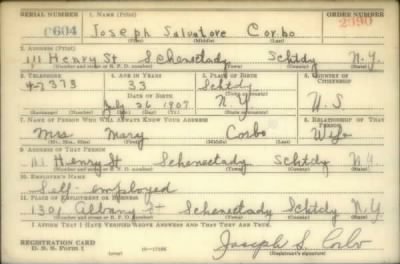 SERIAL NUMBER 1. NAME (Print) ORDER NUMBER
C604 Joseph Salvatore Corbo 2390
(First) (Middle) (Last)
2. ADDRESS (Print)
111 Henry St Schenectady Schtdy N.Y.
(Number and street or R. F. D. number) (Town) (County) (State)
3. TELEPHONE 4. AGE IN YEARS 5. PLACE OF BIRTH 6. COUNTRY OF CITIZENSHIP
4-7373 33 Schtdy
DATE OF BIRTH
July 26 1907 N.Y U.S.
(Mo.) (Day) (Yr.)
7. NAME OF PERSON WHO WILL ALWAYS KNOW YOUR ADDRESS 8. RELATIONSHIP OF THAT PERSON
Mrs Mary Corbo Wife
(Mr., Mrs., Miss) (First) (Middle) (Last)
9. ADDRESS OF THAT PERSON
111 Henry St Schenectady Schtdy N.Y.
(Number and street or R. F. D. number) (Town) (County) (State)
10. EMPLOYER'S NAME
Self-employed
11. PLACE OF EMPLOYMENT OR BUSINESS
1301 Albany St Schenectady Schtdy N.Y.
(Number and street or R. F. D. number) (Town) (County) (State)
I AFFIRM THAT I HAVE VERIFIED ABOVE ANSWERS AND THAT THEY ARE TRUE.
REGISTRATION CARD
D. S. S. Form 1 (over) 16—17105 Joseph S. Corbo
(Registrant's signature)